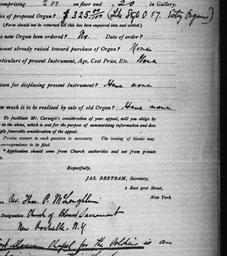 omprising 200 on floor and 20 in Gallery.
ice of proposed Organ? $ 3250
(Form should not be returned till this has been enquired into and noted.)
as new Organ been ordered? No. Date of order?
mount already raised toward purchase of Organ? None
articulars of present Instrument, Age, Cost Price, Etc. None
eason for displacing present Instrument? Have none
ow much is to be realised by sale of old Organ? Have none
To facilitate Mr. Carnegie's consideration of your appeal, will you oblige by
in the above, which is sent for the purpose of summarising information and does
ply favorable consideration of the appeal.
Precise answer to each question is necessary. The leaving of blanks may
correspondence to be filed.
Application should come from Church authorities and not from private
Respectfully,
JAS. BERTRAM, Secretary,
2 East 91st Street,
New York.
Rev. Thos. P. McLoughlin
Designation. Church of Blessed Sacrament
New Rochelle, N.Y.
Chapel for the Soldiers is an